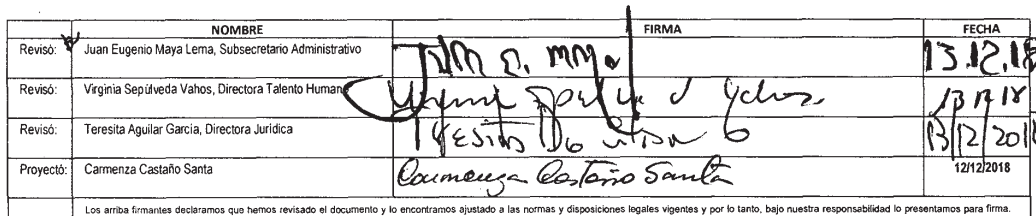 NOMBRE FIRMA FECHA
Revisó: Juan Eugenio Maya Lema, Subsecretario Administrativo 13.12.18
Revisó: Virginia Sepúlveda Vahos, Directora Talento Humano 13 12 18
Revisó: Teresita Aguilar García, Directora Jurídica Teresita Aguilar G 13/12/201
Proyectó: Carmenza Castaño Santa Carmenza Castaño Santa 12/12/2018
Los arriba firmantes declaramos que hemos revisado el documento y lo encontramos ajustado a las normas y disposiciones legales vigentes y por lo tanto, bajo nuestra responsabilidad lo presentamos para firma.